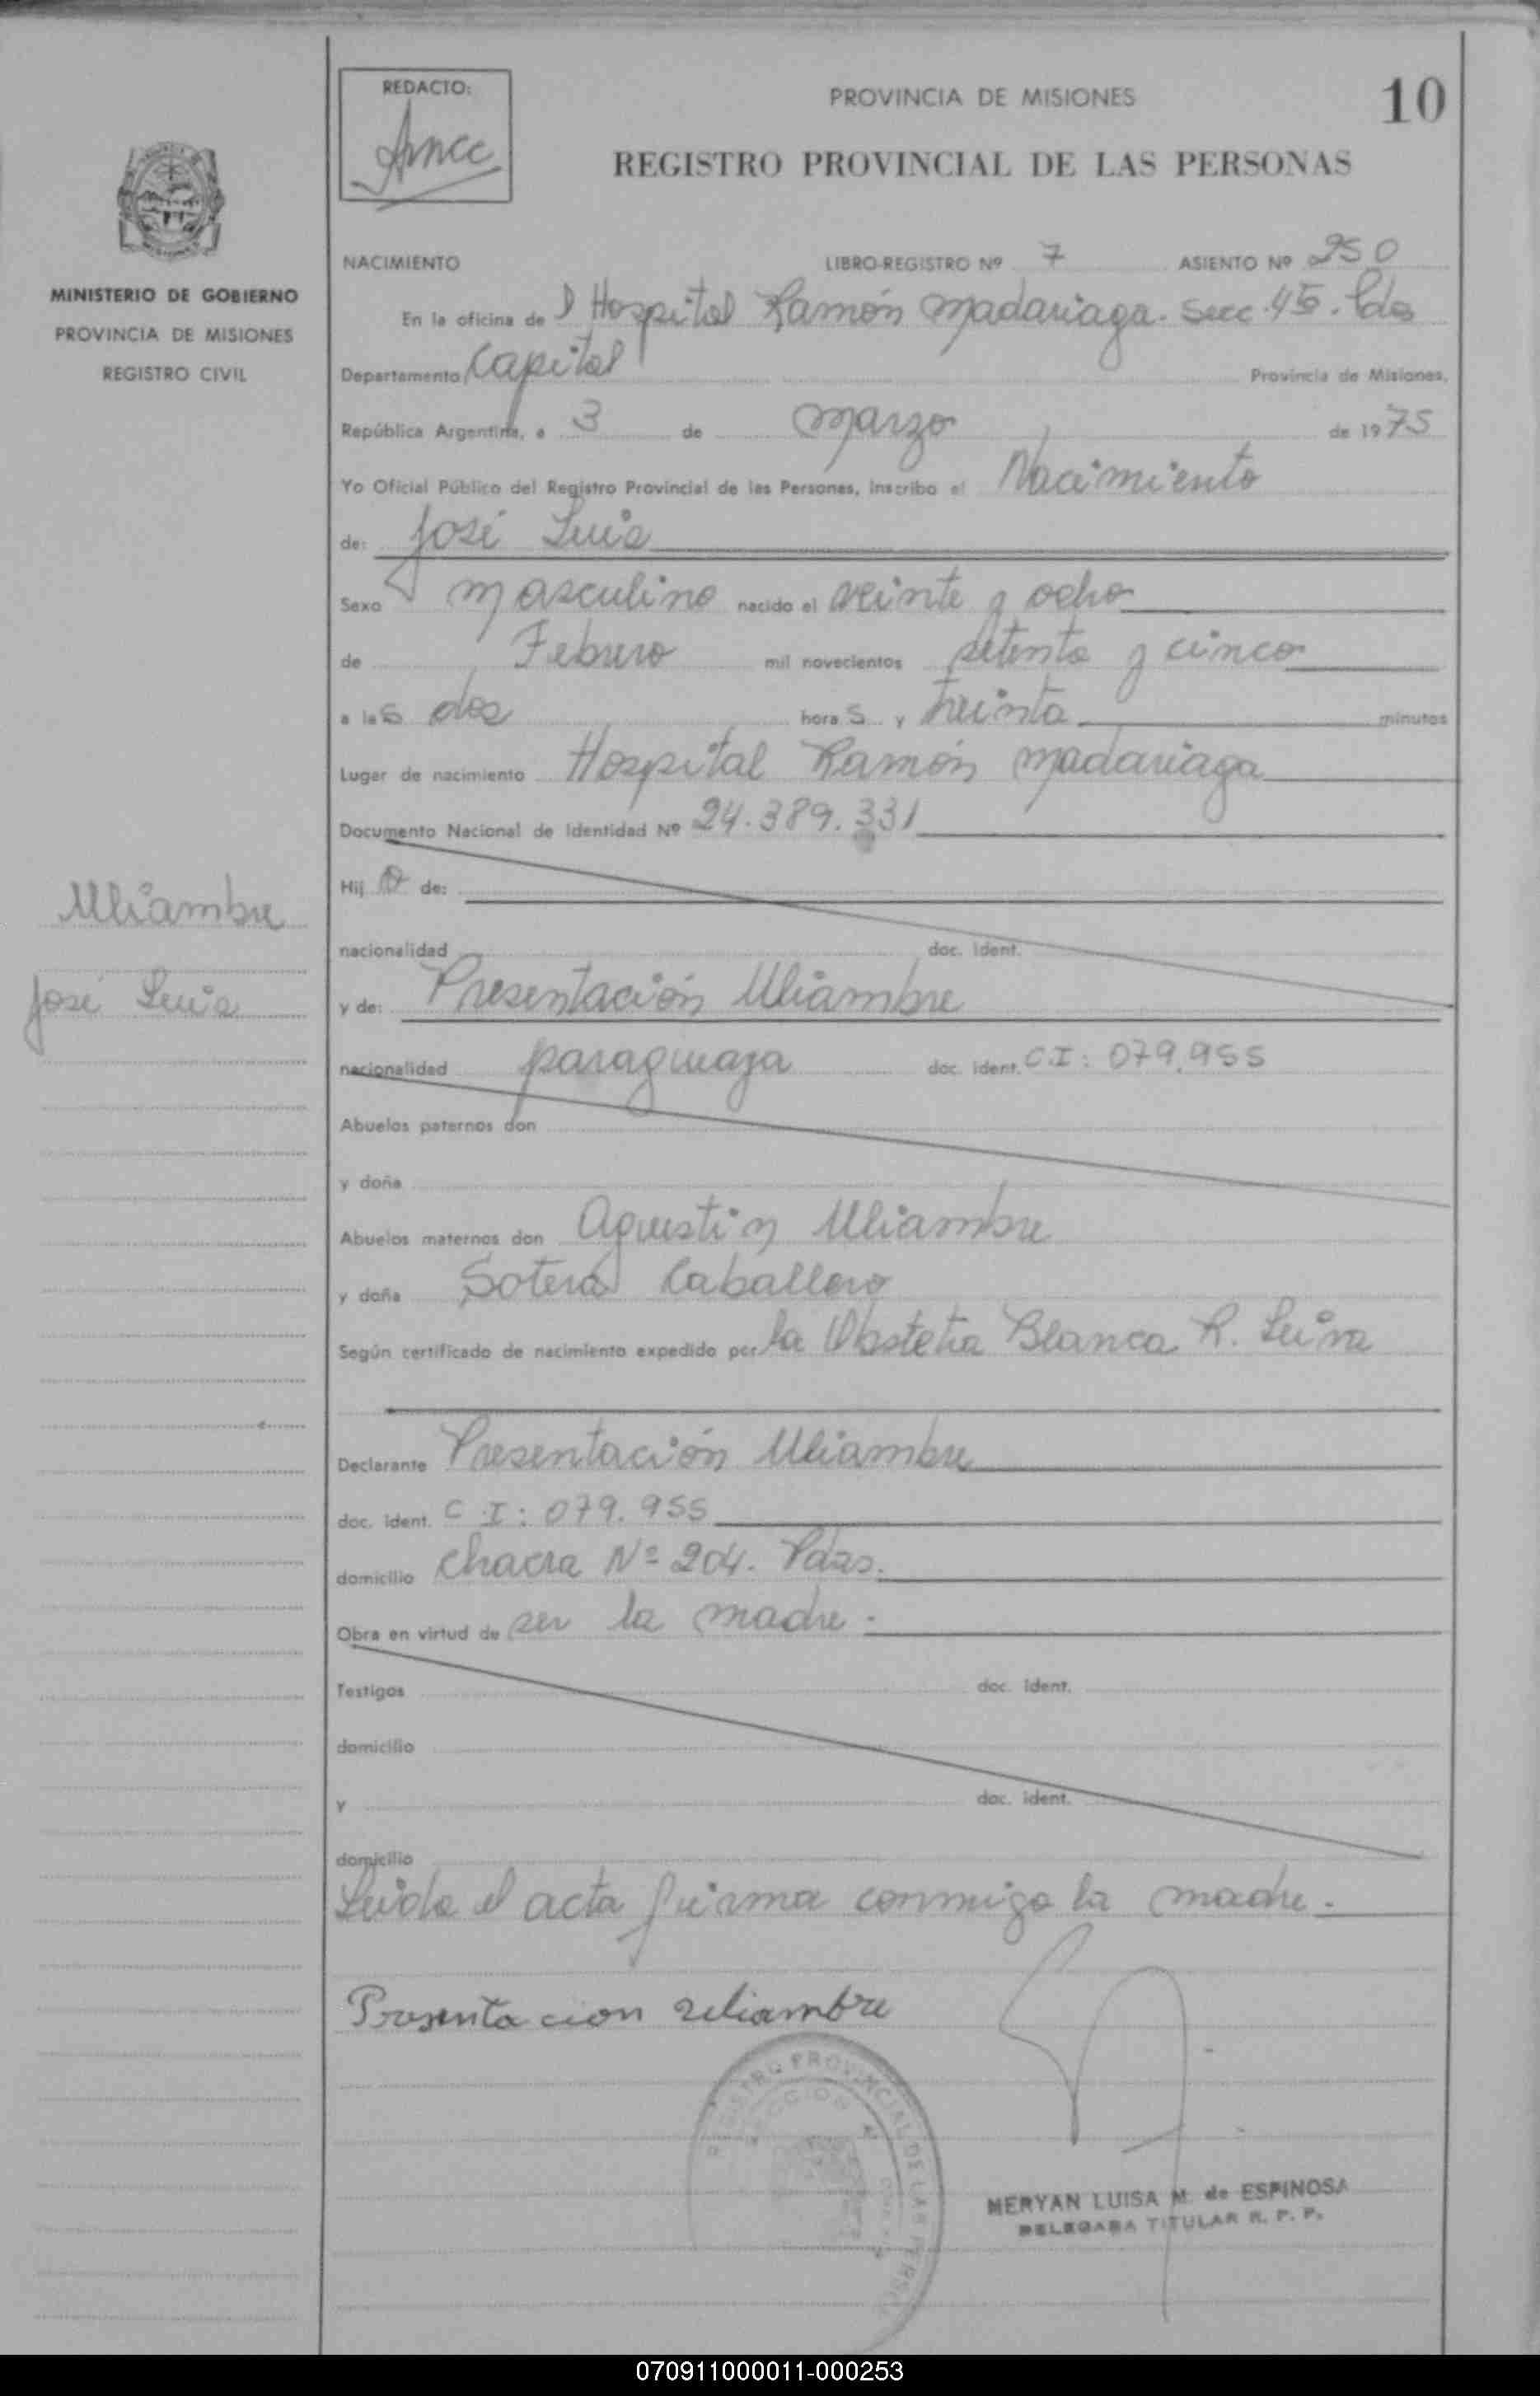 REDACTO:
PROVINCIA DE MISIONES
10
REGISTRO PROVINCIAL DE LAS PERSONAS
MINISTERIO DE GOBIERNO
PROVINCIA DE MISIONES
REGISTRO CIVIL
NACIMIENTO LIBRO-REGISTRO Nº 7 ASIENTO Nº 250
En la oficina de l Hospital Ramón Madariaga. Secc. 4ta. Pdas
Departamento Capital Provincia de Misiones,
República Argentina, a 3 de Marzo de 1975
Yo Oficial Público del Registro Provincial de las Personas, inscribo el Nacimiento
de: José Luis
Sexo masculino nacido el veinte y ocho
de Febrero mil novecientos setenta y cinco
a las dos horas y treinta minutos
Lugar de nacimiento Hospital Ramón Madariaga
Documento Nacional de Identidad Nº 24.389.331
Hijo de:
nacionalidad doc. ident.
Uliambre
José Luis
y de: Presentación Uliambre
nacionalidad paraguaya doc. ident. C.I: 079.955
Abuelos paternos don
y doña
Abuelos maternos don Agustin Uliambre
y doña Sotera Caballero
Según certificado de nacimiento expedido por la Obstetra Blanca R. Leiva
Declarante Presentación Uliambre
doc. ident. C.I: 079.955
domicilio Chacra Nº 204. Pdas.
Obra en virtud de ser la madre.
Testigos doc. ident.
domicilio
y doc. ident.
domicilio
Leida el acta firma conmigo la madre.
Presentacion uliambre
REGISTRO PROVINCIAL DE LAS PERSO
SECCION
MERYAN LUISA M. de ESPINOSA
DELEGADA TITULAR R. P. P.
070911000011-000253